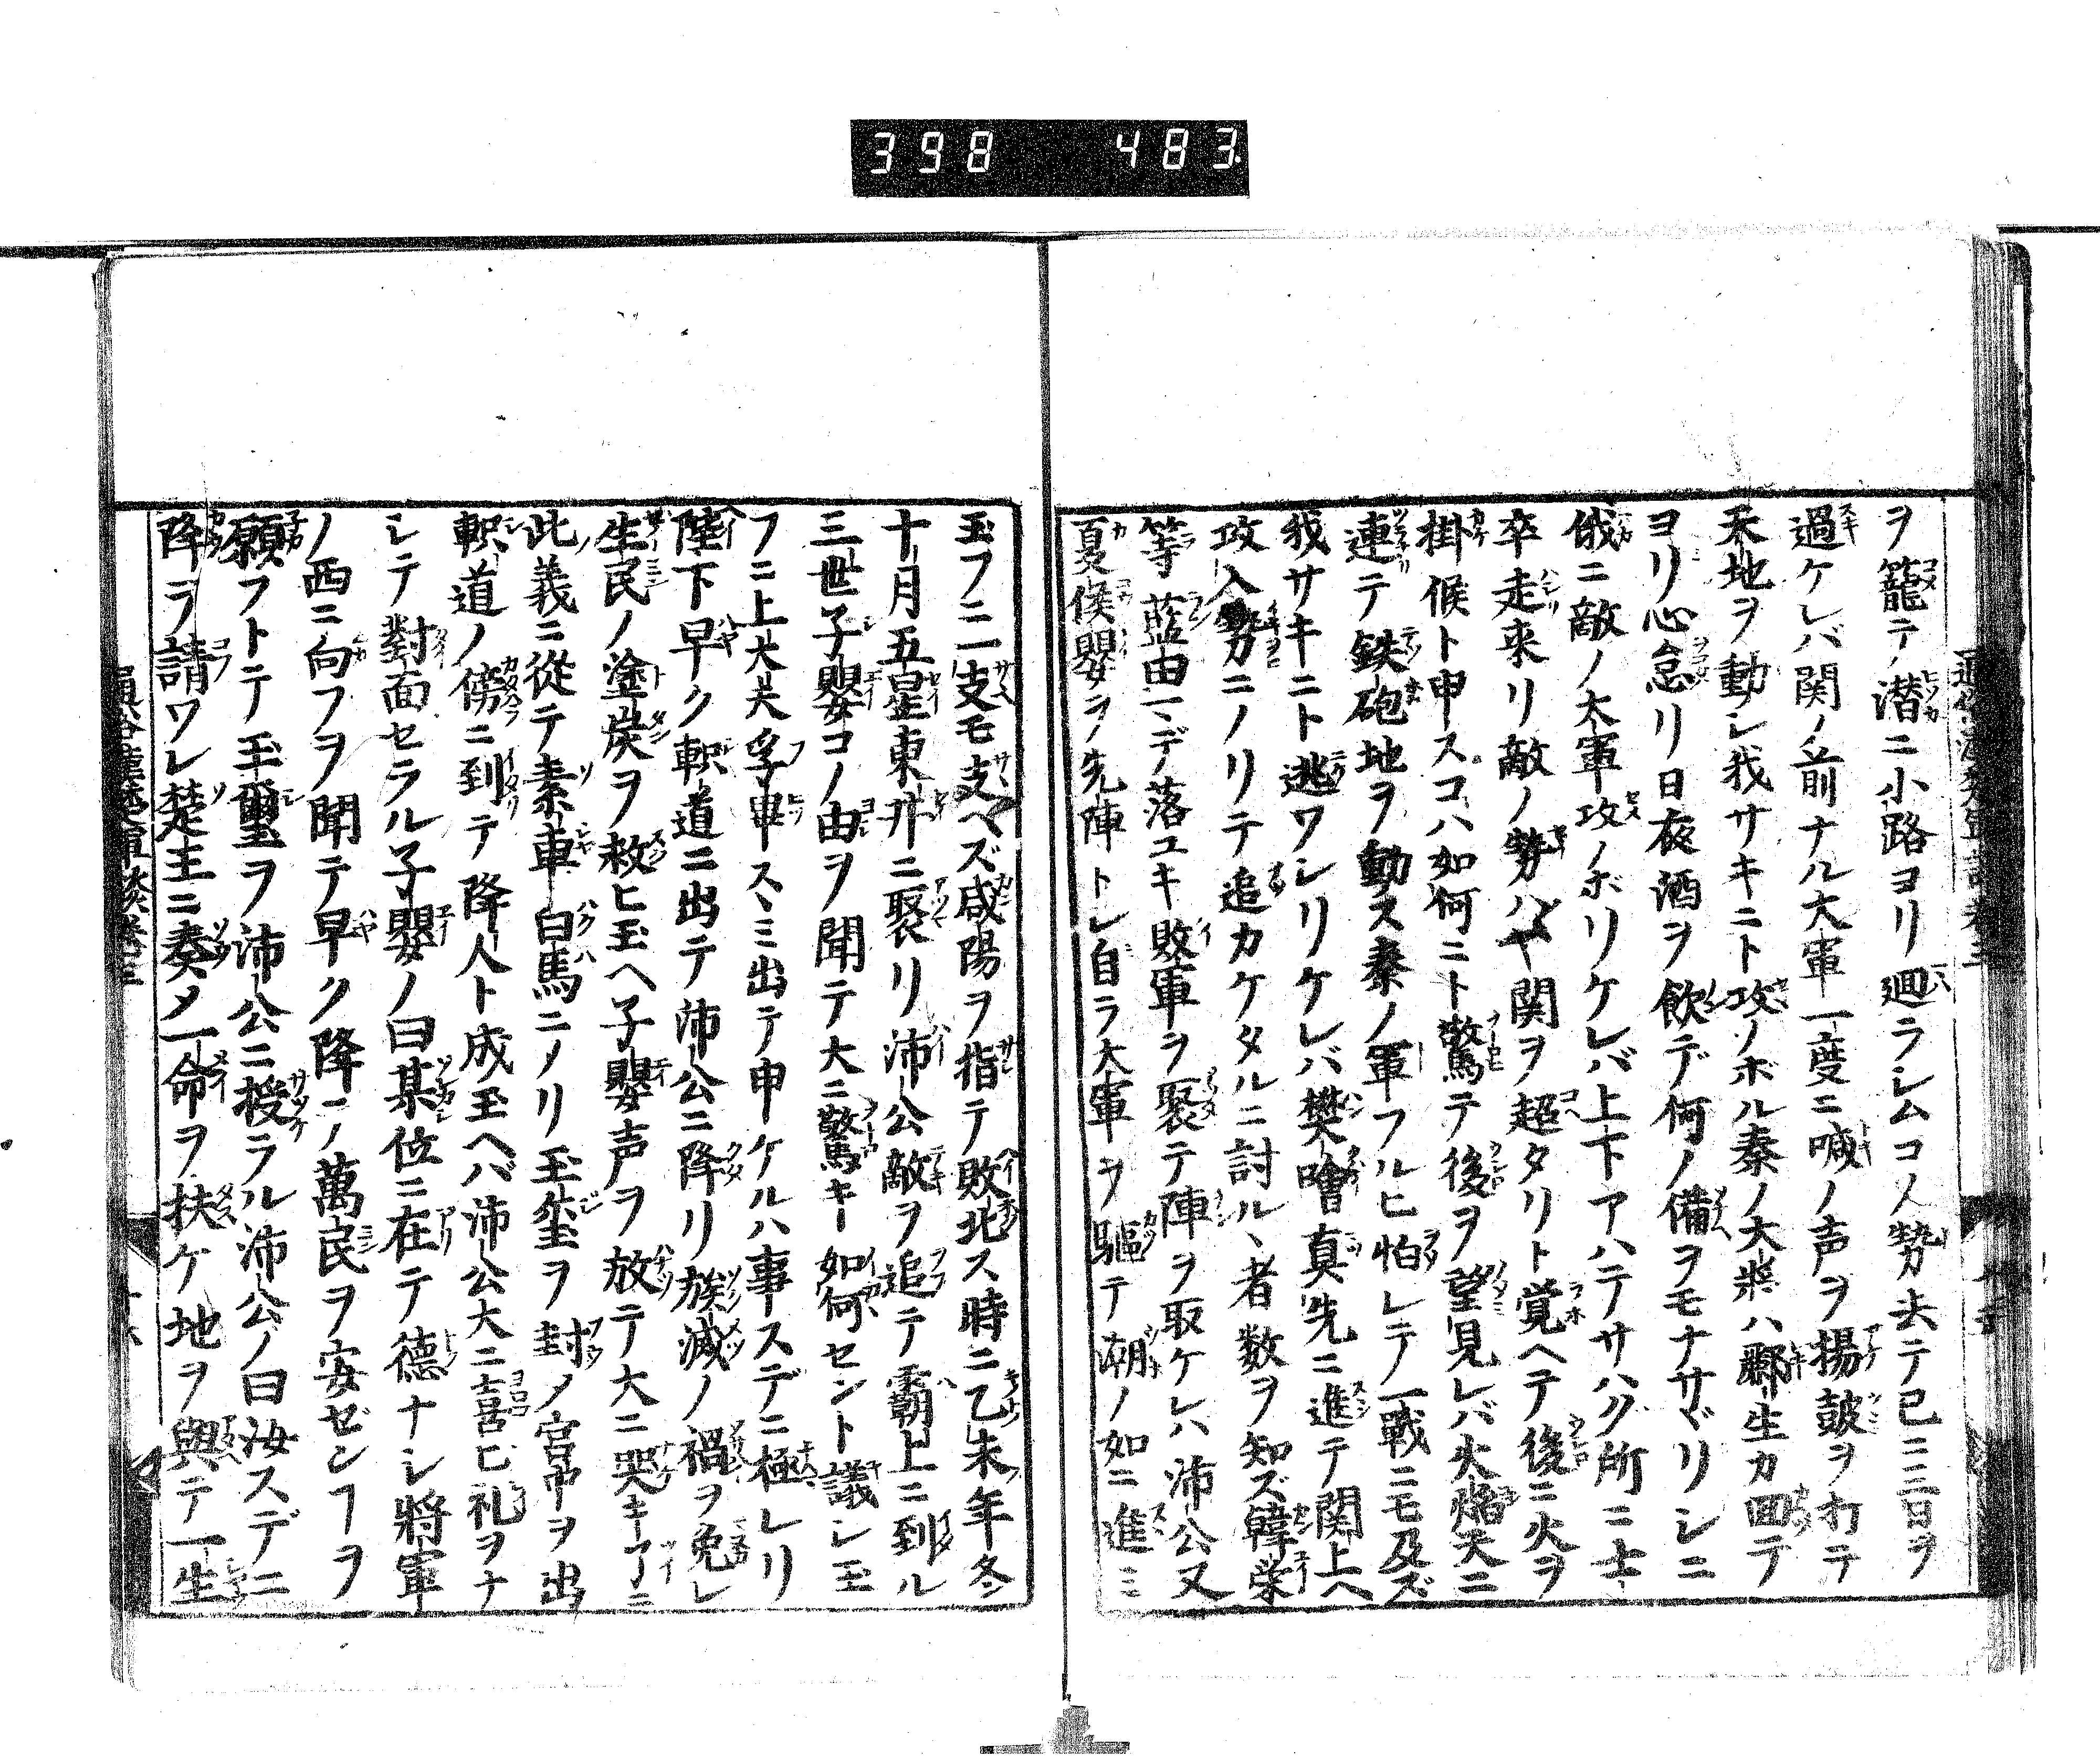 398 483
ヲ籠テ潜ニ小路ヨリ廻ラシムコノ勢去テ已ニ三日ヲ
過ケレバ関ノ前ナル大軍一度ニ喊ノ声ヲ揚鼓ヲ打テ
天地ヲ動シ我サキニト攻ノボル秦ノ大将ハ酈生カ回テ
ヨリ心怠リ日夜酒ヲ飲デ何ノ備ヲモナサヾリシニ
俄ニ敵ノ大軍攻ノボリケレバ上下アハテサハグ所ニ士
卒走来リ敵ノ勢ハヤ関ヲ超タリト覚ヘテ後ニ火ヲ
掛候ト申スコハ如何ニト驚テ後ヲ望見レバ火焔天ニ
連テ鉄砲地ヲ動ス秦ノ軍フルヒ怕レテ一戦ニモ及ズ
我サキニト逃ワシリケレバ樊噲真先ニ進テ関上ヘ
攻入勢ニノリテ追カケタルニ討ルヽ者数ヲ知ズ韓栄
等藍田マデ落ユキ敗軍ヲ聚テ陣ヲ取ケレハ沛公又
夏侯嬰ヲ先陣トシ自ラ大軍ヲ驅テ潮ノ如ニ進ミ
玉フニ支モ支ヘズ咸陽ヲ指テ敗北ス時ニ乙未年冬
十月五星東井ニ聚リ沛公敵ヲ追テ霸上ニ到ル
三世子嬰コノ由ヲ聞テ大ニ驚キ如何セント議シ玉
フニ上大夫孚畢スヽミ出テ申ケルハ事スデニ極レリ
陛下早ク軹道ニ出テ沛公ニ降リ族滅ノ禍ヲ免レ
生民ノ塗炭ヲ救ヒ玉ヘ子嬰声ヲ放テ大ニ哭キ了ニ
此義ニ従テ素車白馬ニノリ玉璽ヲ封ノ宮中ヲ出
軹道ノ傍ニ到テ降人ト成玉ヘバ沛公大ニ喜ヒ礼ヲナ
シテ對面セラル子嬰ノ曰某位ニ在テ德ナシ将軍
ノ西ニ向フヲ聞テ早ク降ニノ萬民ヲ安ゼンヿヲ
願フトテ玉璽ヲ沛公ニ授ラル沛公ノ曰汝スデニ
降ラ請ワレ楚王ニ奏メ一命ヲ扶ケ地ヲ與テ一生